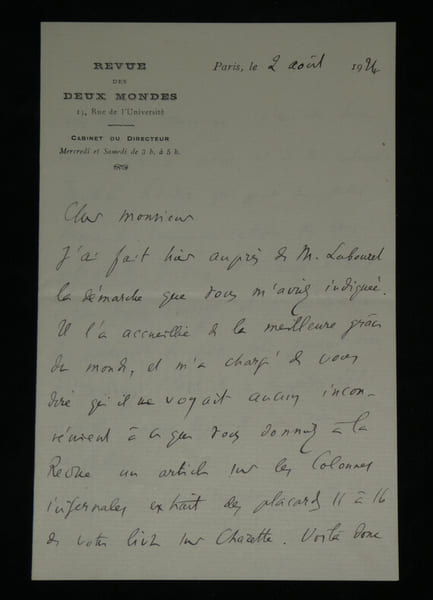 REVUE
DES
DEUX MONDES
15, Rue de l'Université
CABINET DU DIRECTEUR
Mercredi et Samedi de 3 h. à 5 h.
Paris, le 2 août 1924
Cher Monsieur
J'ai fait hier auprès de M. Labouret
la démarche que vous m'aviez indiquée.
Il l'a accueillie de la meilleure grâce
du monde, et m'a chargé de vous
dire qu'il ne voyait aucun incon-
vénient à ce que vous donniez à la
Revue un article sur les Colonnes
infernales extrait des placards 11 à 16
de votre livre sur Charette. Voilà donc